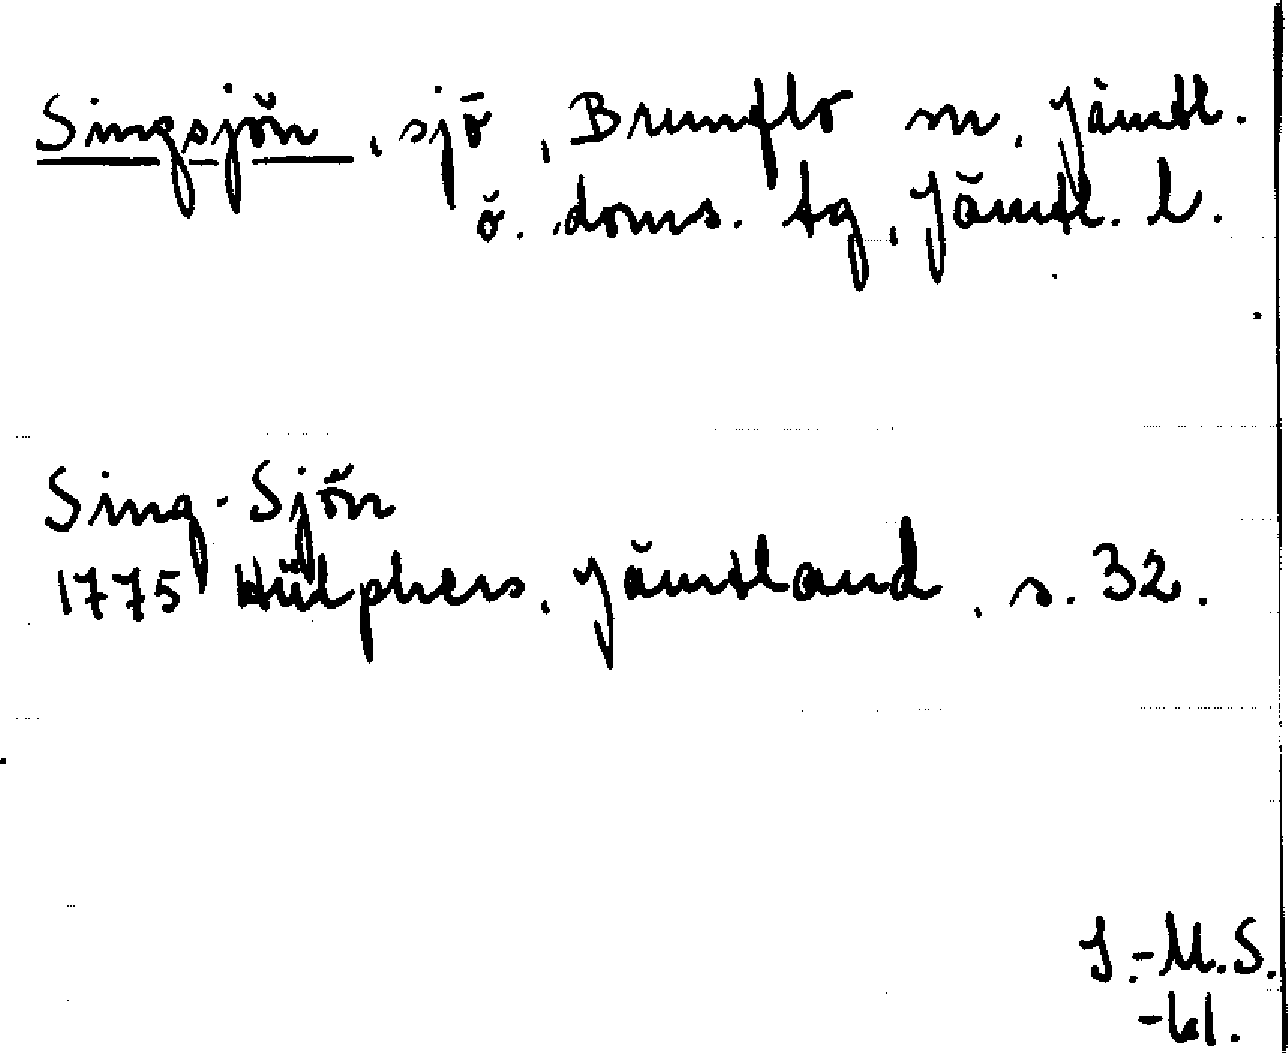 Singsjön, sjö, Brunflo sn, Jämtl.
ö. doms. tg, Jämtl. l.
Sing-Sjön
1775 Hülphers, Jämtland, s. 32.
I.-M.S.
-61.